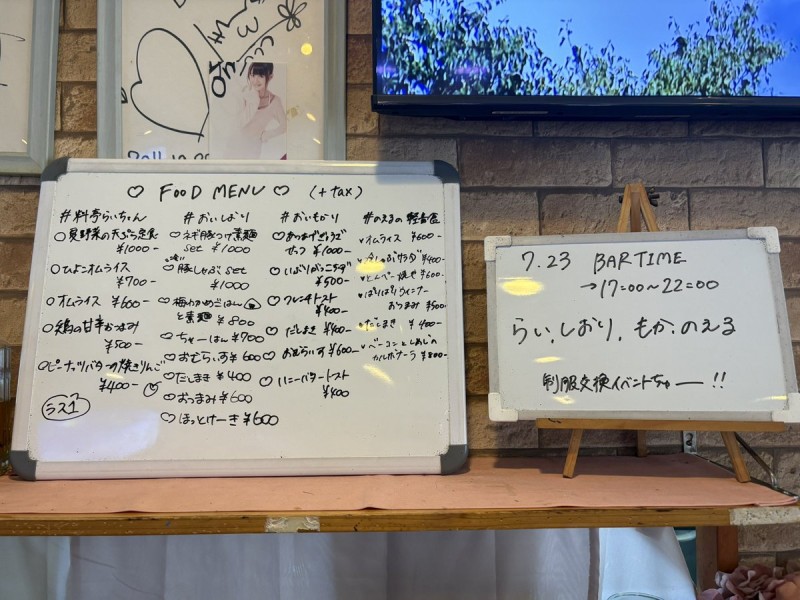 ♡ FOOD MENU ♡ (+tax)
#料亭らいちゃん
○夏野菜の天ぷら定食
¥1000-
○ひよこオムライス
¥700-
○オムライス ¥600-
○鶏の甘辛おつまみ
¥500-
○ピーナッツバターの焼きりんご
¥400-
ラス1
#おいしおり
♡ネギ豚つけ素麺
set ¥1000
♡豚しゃぶ set
¥1000
♡梅わかめごはん
と素麺 ¥800
♡ちゃーはん ¥700
♡おむらいす ¥600
♡だしまき ¥400
♡おつまみ ¥600
♡ほっとけーき ¥600
#おいもかり
セット ¥1000-
¥500-
♡フレンチトースト
¥400-
♡だしまき ¥400-
♡おむらいす ¥600-
♡ハニーバタートースト
¥400
#のえるの軽食店
♥オムライス ¥600-
¥400-
♥とんぺー焼き ¥600-
♥ぱりぱりウインナー
おつまみ ¥500-
♥だしまき ¥400-
♥ベーコンとしめじの
カルボナーラ ¥800-
7.23 BARTIME
→17:00~22:00
らい、しおり、もか、のえる
制服交換イベントぢゃー!!